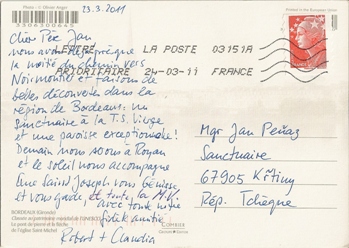 Photo : © Olivier Anger
Printed in the European Union
23.3.2011
3306300645
Cher Père Jan
nous avons déjà presque
la moitié du chemin vers
Noirmoutier et faisons de
belles découverte dans la
région de Bordeaux: un
sanctuaire à la T.S. Vierge
et une paroisse exceptionale!
Demain nous allons à Royan
et le soleil nous accompagne
Que Saint Joseph vous bénisse
et vous garde et toute la M.V.
avec toute notre
fidèle amitié
Robert + Claudia
LETTRE LA POSTE 03151A
PRIORITAIRE 24-03-11 FRANCE
Mgr Jan Peňáz
Sanctuaire
67905 Křtiny
Rép. Tchèque
BORDEAUX (Gironde)
Le pont de pierre et la flèche
de l'église Saint-Michel